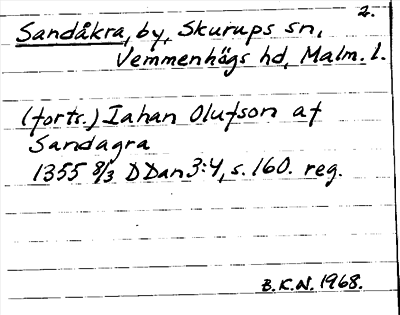 2.
Sandåkra, by, Skurups sn,
Vemmenhögs hd, Malm. l.
(forts.) Iahan Olufson af
Sandagra
1355 8/3 DDan 3:4, s. 160. reg.
B.K.N. 1968.